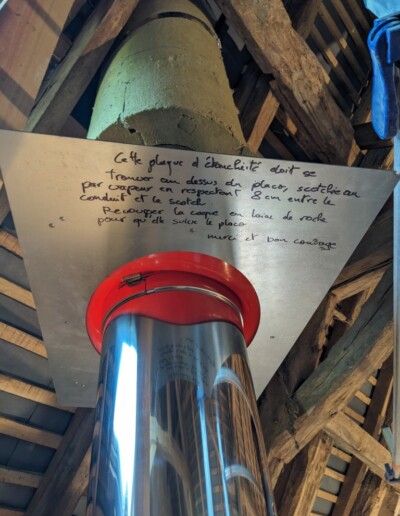 Cette plaque d'étanchéité doit se
trouver au dessus du placo, scotchée au
par vapeur en respectant 8 cm entre le
conduit et le scotch
Recouper la coque en laine de roche
pour qu'elle suive le placo
merci et bon courage